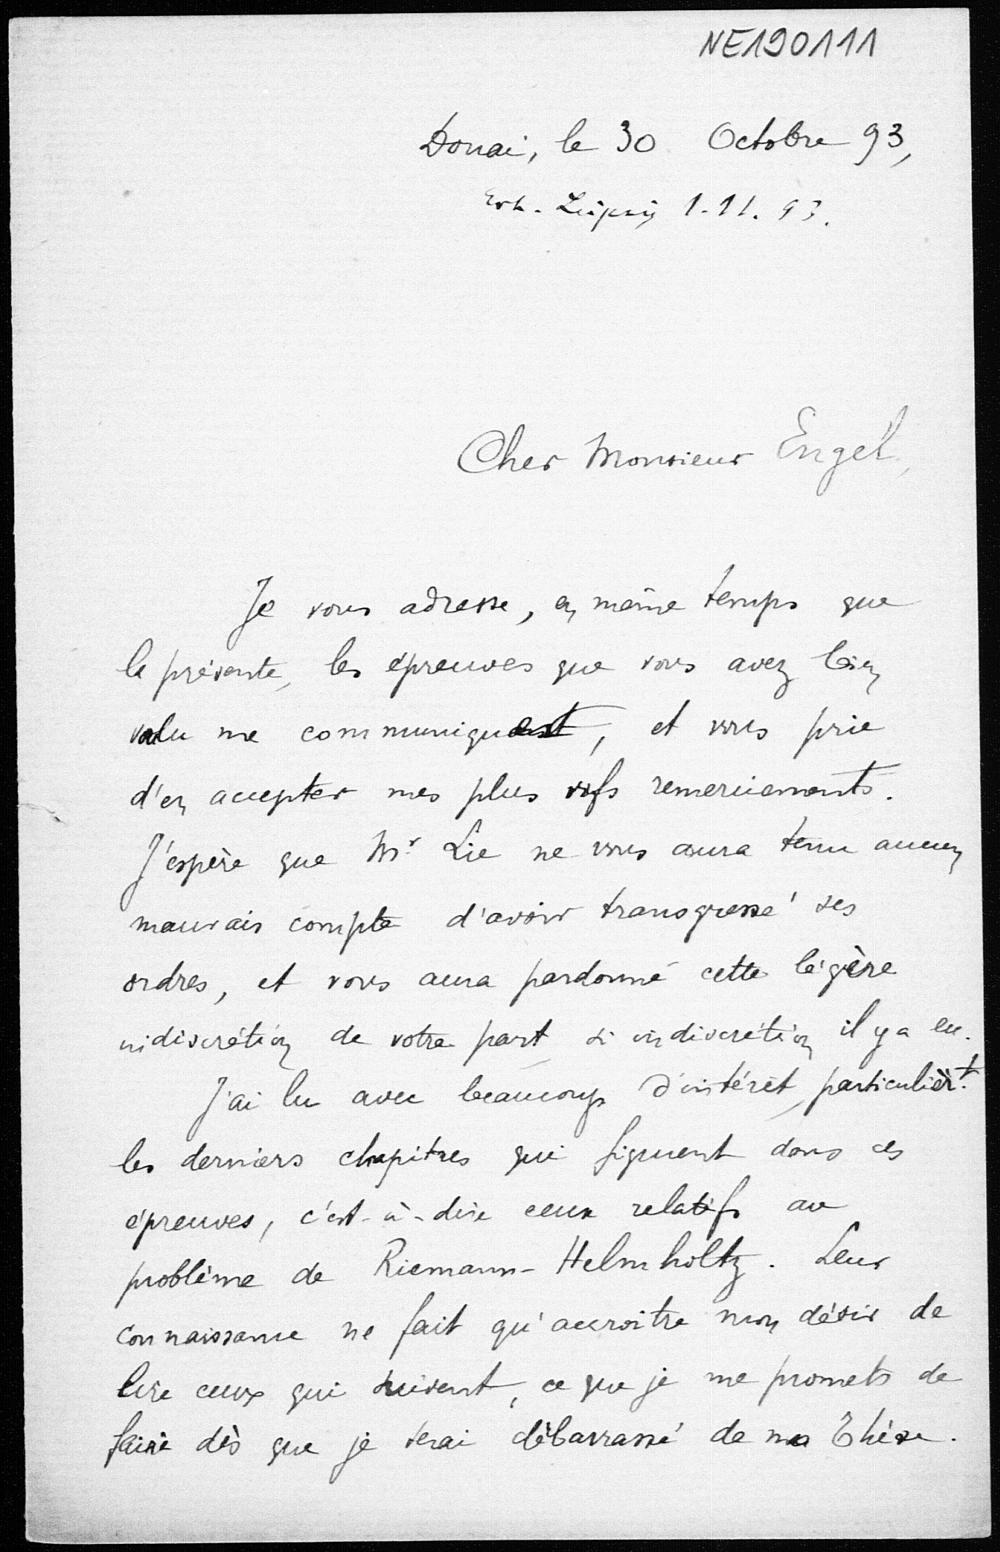 NE190111
Douai, le 30 Octobre 93,
Erh. Leipzig 1.11.93.
Cher Monsieur Engel,
Je vous adresse, en même temps que
la présente, les épreuves que vous avez bien
voulu me communiquer, et vous prie
d'en accepter mes plus vifs remerciements.
J'espère que Mr Lie ne vous aura tenu aucun
mauvais compte d'avoir transgressé ses
ordres, et vous aura pardonné cette légère
indiscrétion de votre part, si indiscrétion il y a eu.
J'ai lu avec beaucoup d'intérêt, particulièrt
les derniers chapitres qui figurent dans ces
épreuves, c'est-à-dire ceux relatifs au
problème de Riemann-Helmholtz. Leur
connaissance ne fait qu'accroître mon désir de
lire ceux qui suivent, ce que je me promets de
faire dès que je serai débarrassé de ma Thèse.